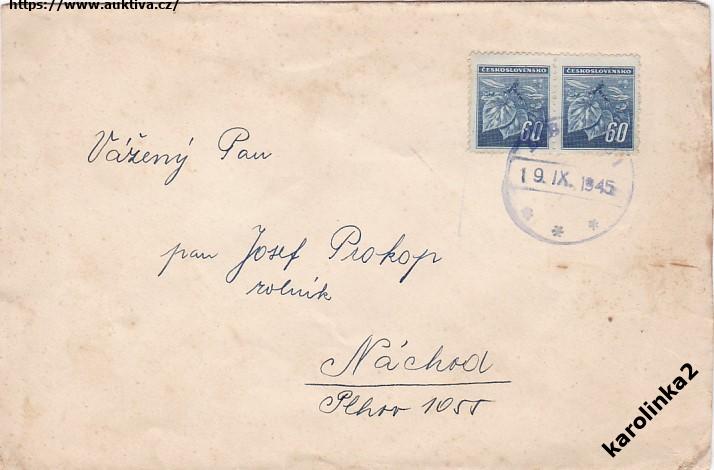 https://www.auktiva.cz/
ČESKOSLOVENSKO ČESKOSLOVENSKO
60 60
19. IX. 1945
* * *
Vážený Pan
pan Josef Prokop
rolník
Náchod
Plhov 105
karolinka2